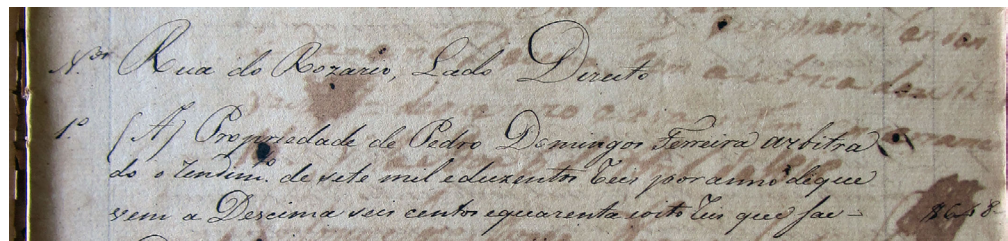 N.os Rua do Rozario, Lado Direito
1.º (A) Propriedade de Pedro Domingos Ferreira arbitra
do o Rendim.to de sete mil eduzentos Reis por anno deque
vem a Dezcima seis centos equarenta eoito Reis que sae - $648